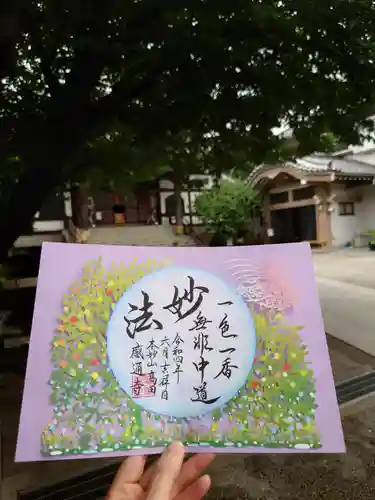 一色一香
無非中道
妙法
令和四年
六月吉祥日
本妙山
感通寺